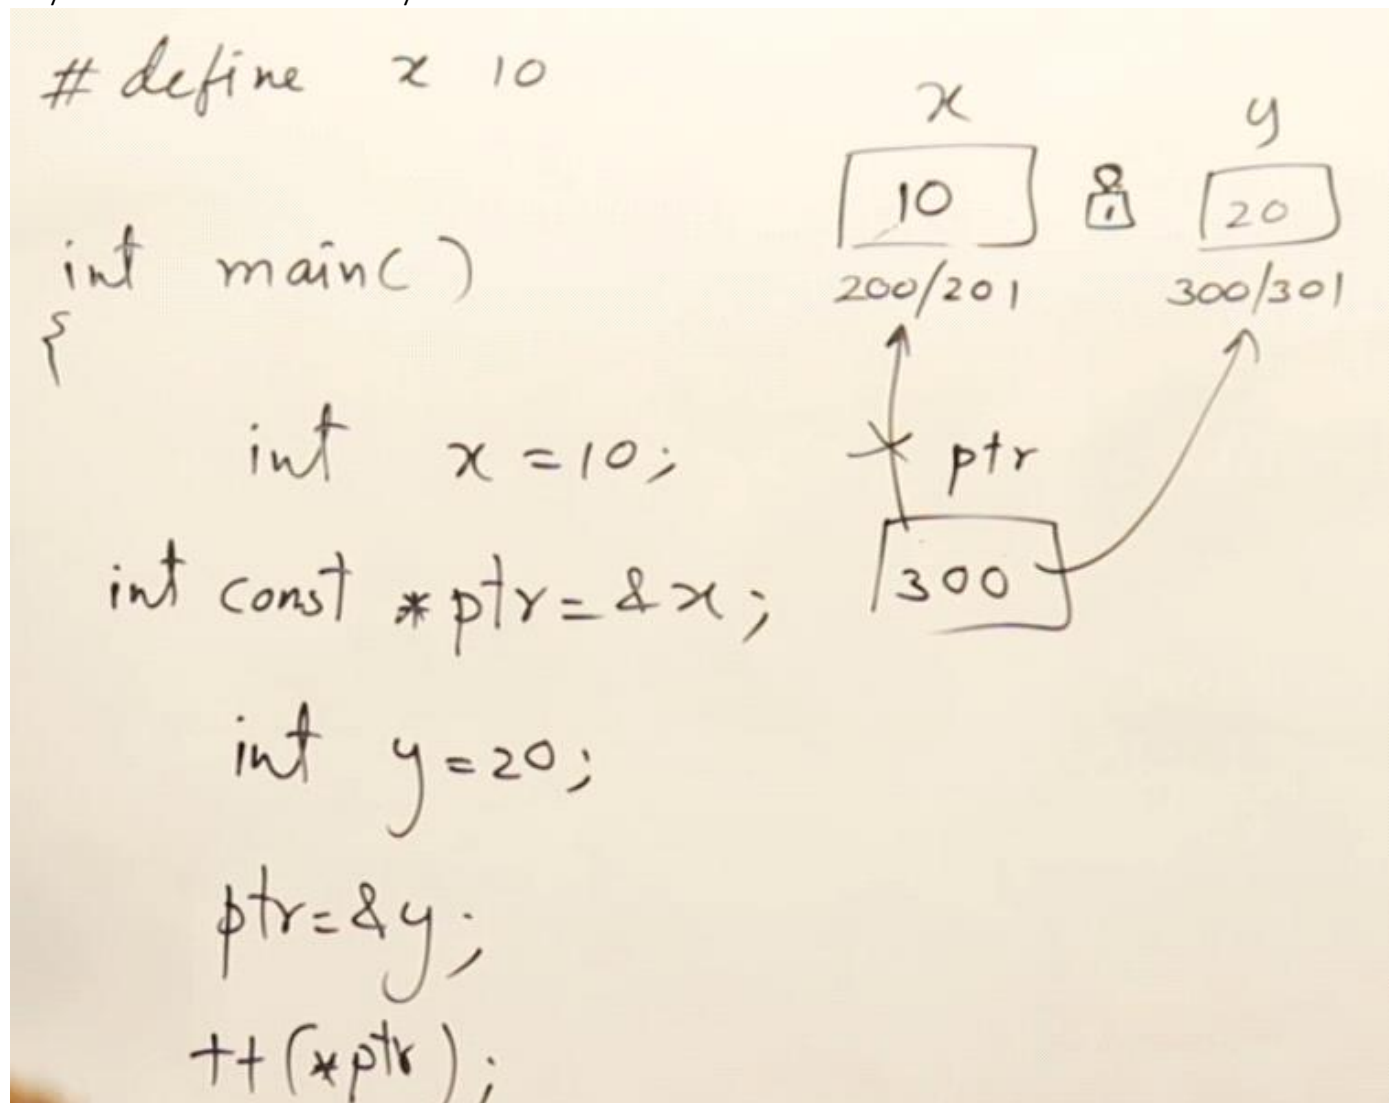 # define x 10
int main()
{
int x = 10;
int const *ptr = &x;
int y = 20;
ptr = &y;
++(*ptr);
x
10
200/201
y
20
300/301
ptr
300